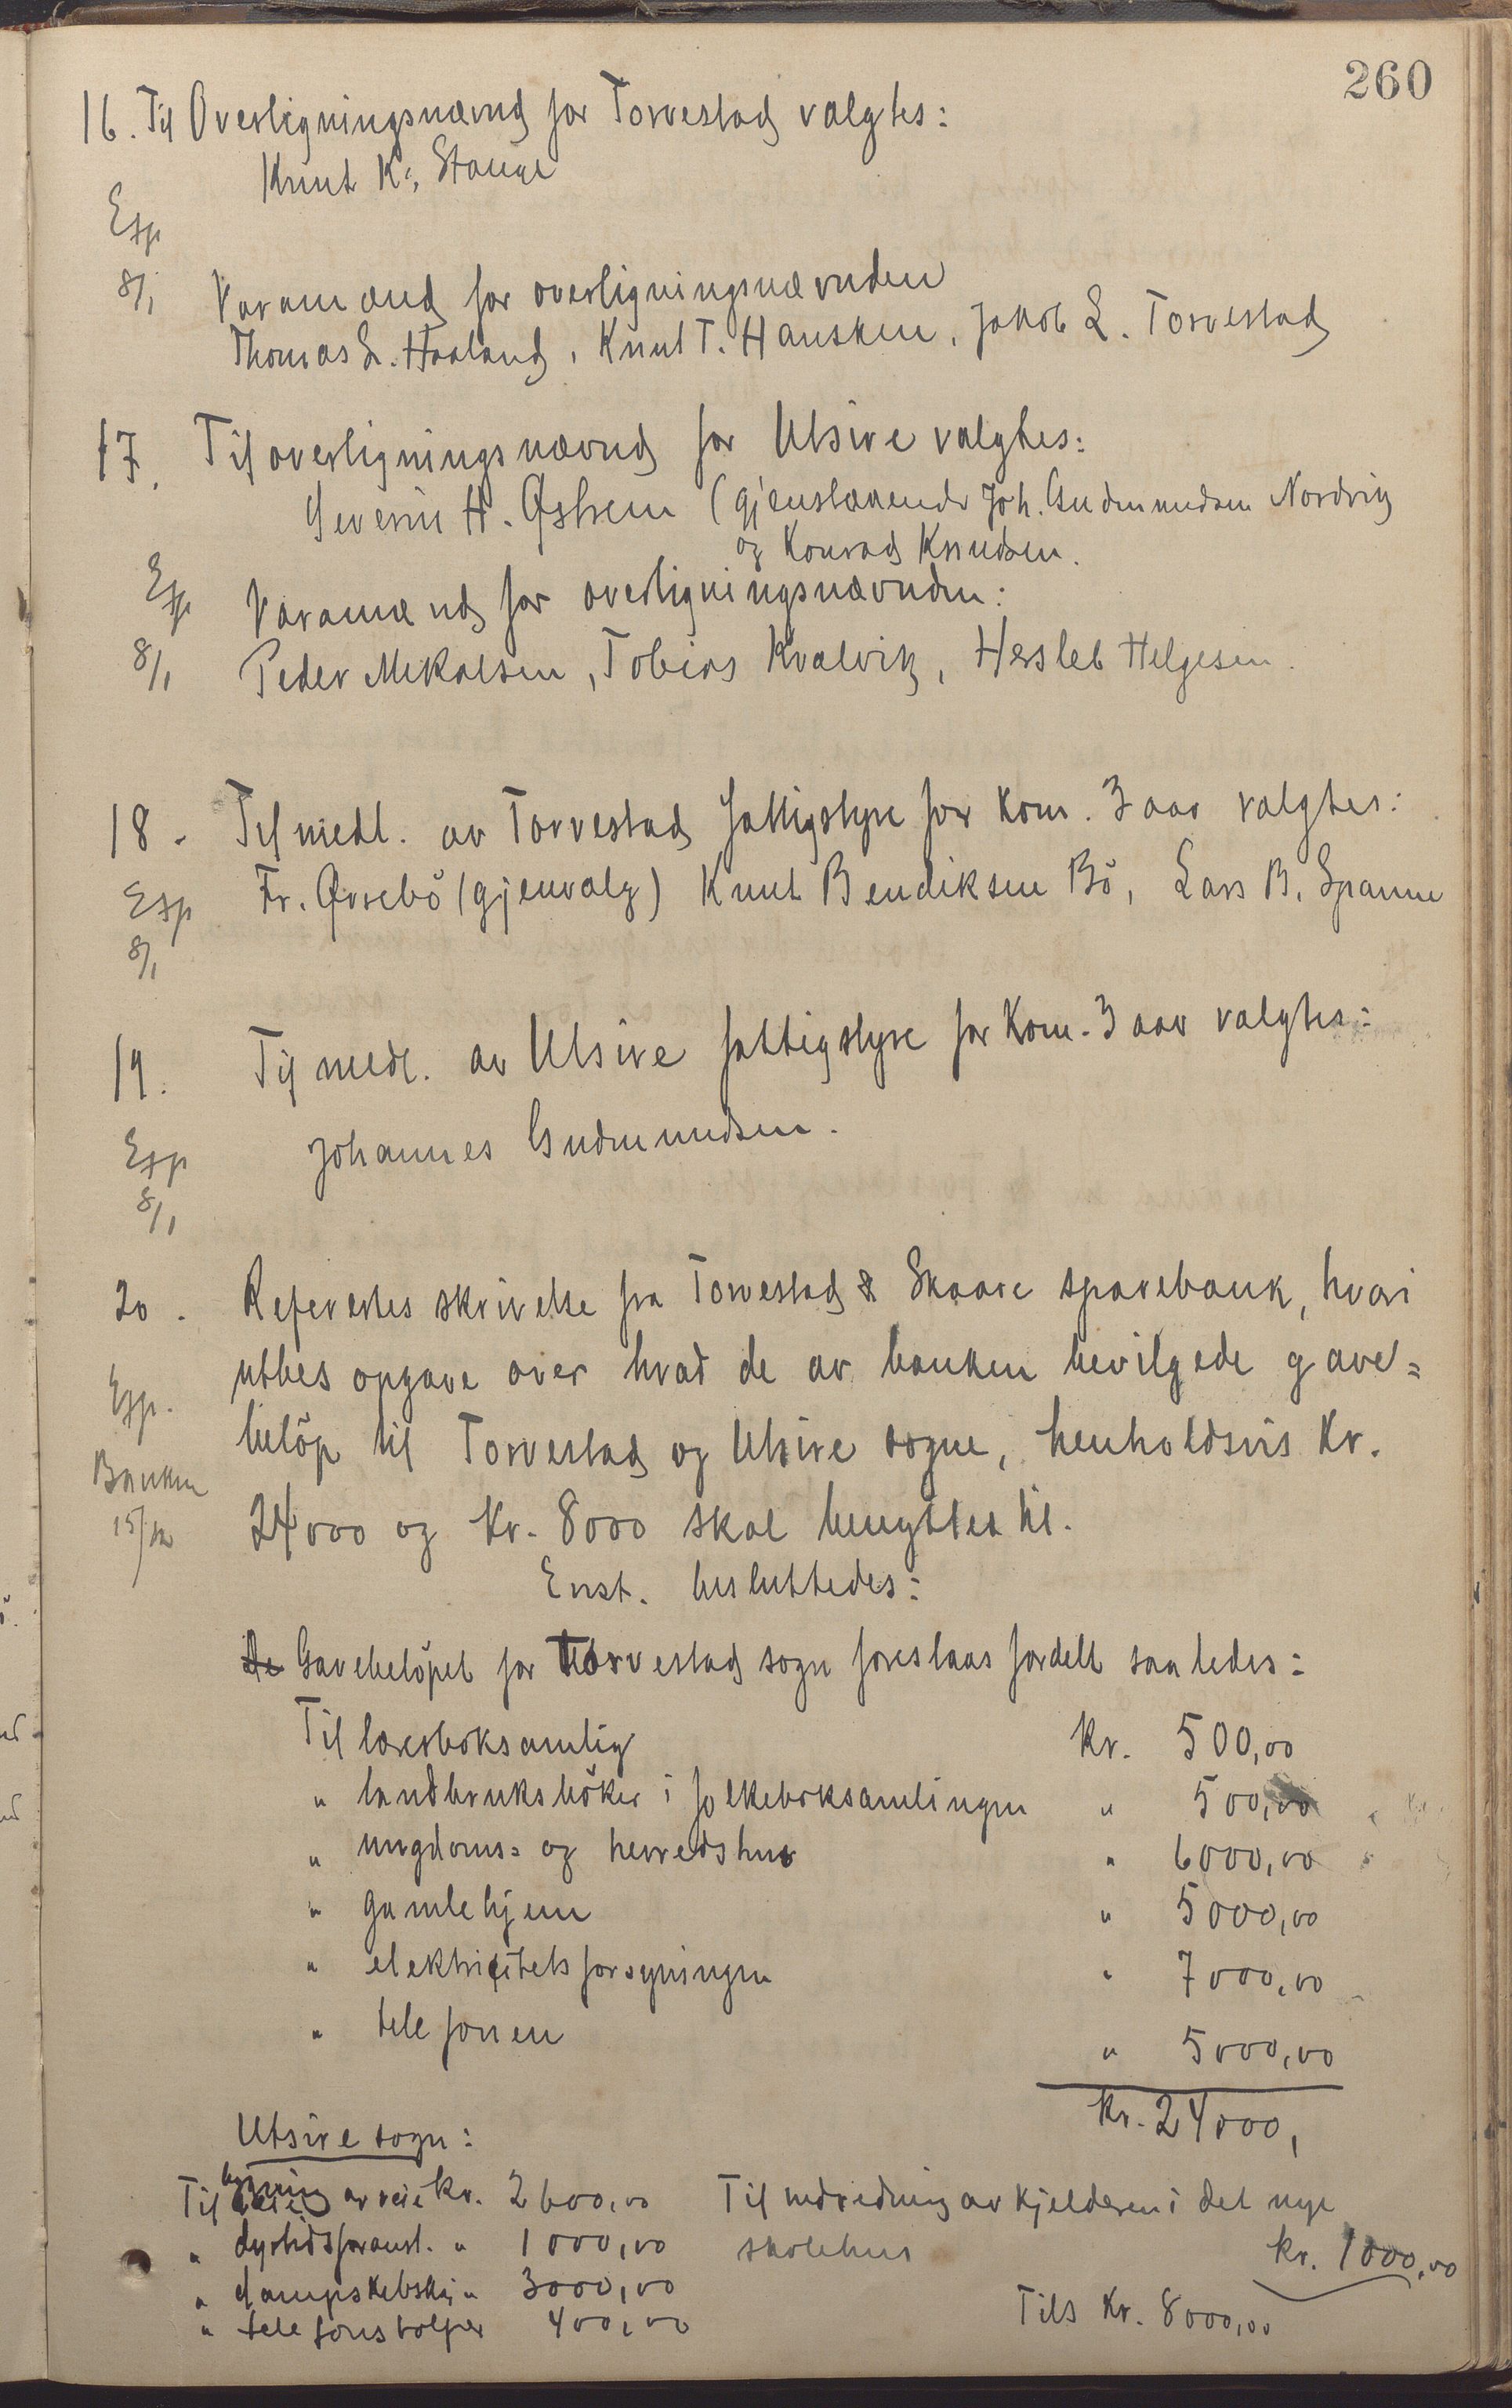 260
16. Til Overligningsnævnd for Torvestad valgtes:
Knut K. Stange
Exp
8/1
Varamænd for overligningsnævnden
Thomas L. Haaland, Knut T. Hausken, Jakob L. Torvestad
17. Til overligningsnævnd for Utsire valgtes:
Severin H. Østrem (gjenstaaende Joh. Gudmundsen Nordvik
og Konrad Knudsen.
Exp
Varamænd for overligningsnævnden:
8/1
Peder Mikalsen, Tobias Kvalvik, Hersleb Helgesen.
18. Til medl. av Torvestad fattigstyre for kom. 3 aar valgtes:
Exp Fr. Ørrebö (gjenvalg) Knut Bendiksen Bö, Lars B. Spanne
8/1
19. Til medl. av Utsire fattigstyre for kom. 3 aar valgtes:
Exp Johannes Gudmundsen.
8/1
20. Refertes skrivelse fra Torvestad & Skaare sparebank, hvori
utbes opgave over hvad de av banken bevilgede gave=
Exp.
belöp til Torvestad og Utsire sogne, henholdsvis Kr.
Banken
24000 og Kr. 8000 skal benyttes til.
15/12
Enst. besluttedes:
De Gavebelöpet for Torvestad sogn foreslaas fordelt saaledes:
Til læserboksamlig Kr. 500,00
" landbruksböker i folkeboksamlingen " 500,00
" ungdoms= og herredshus " 6000,00
" gamlehjem " 5000,00
" elektricitetsforsyningen " 7000,00
" telefonen " 5000,00
Kr. 24000,
Utsire sogn:
Til bygning av veie Kr. 2600,00 Til indredning av kjelderen i det nye
" dyrtidsforanst. " 1000,00 skolehus Kr. 1000,00
" dampskibskai " 3000,00
" telefonstolper 400,00 Tils Kr. 8000,00